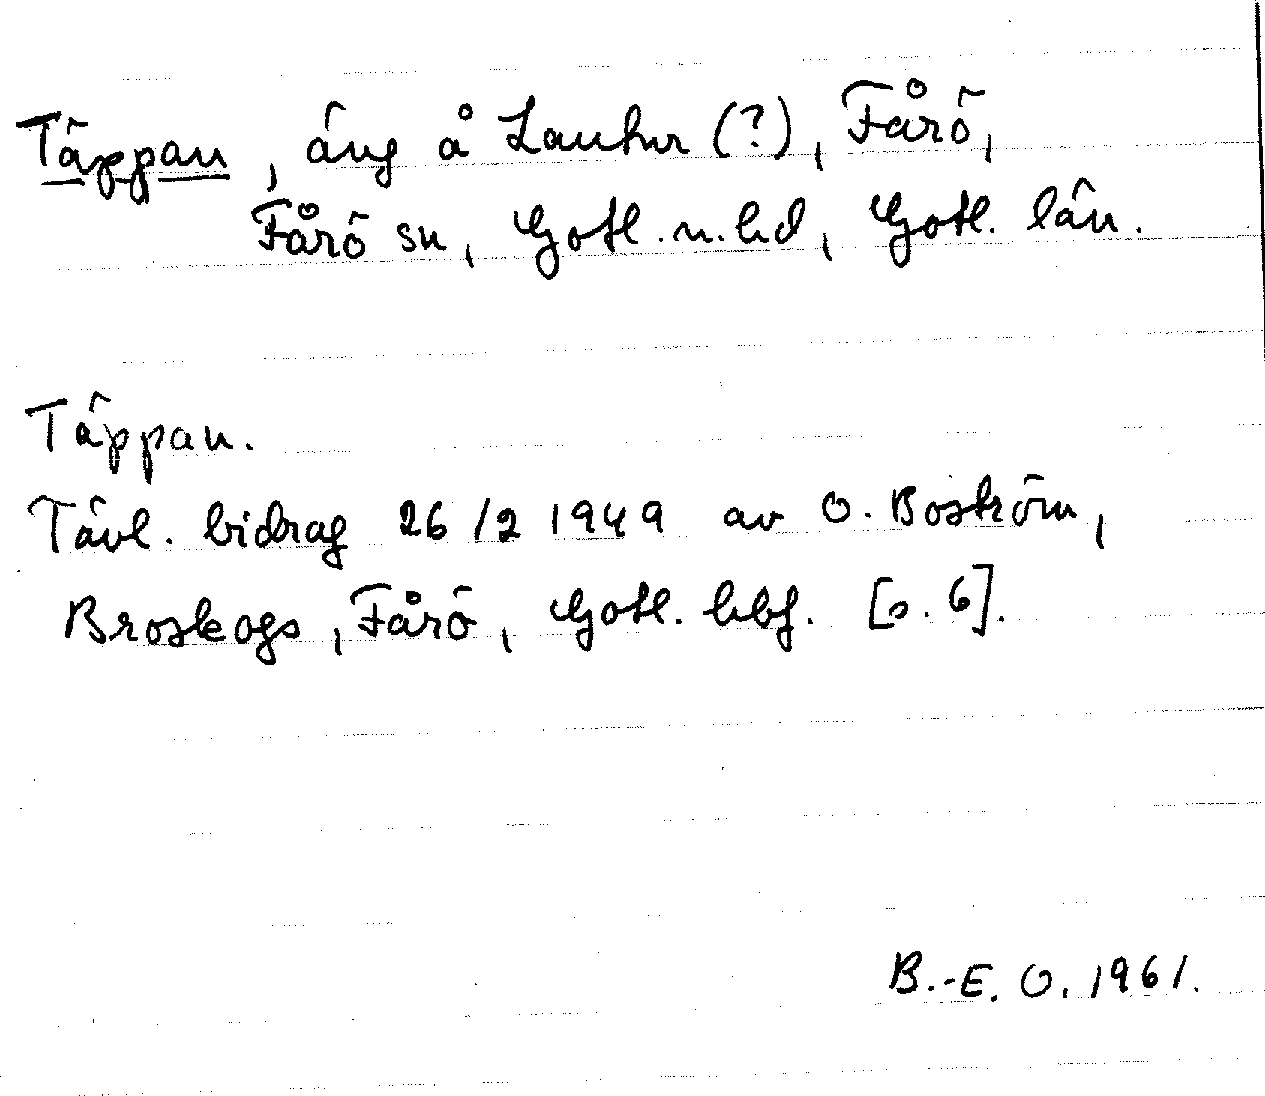 Täppan, äng å Lauhur (?), Fårö,
Fårö sn, Gotl. n. hd, Gotl. län.
Täppan.
Tävl. bidrag 26/2 1949 av O. Boström,
Broskogs, Fårö, Gotl. hbf. [s. 6].
B.-E. O. 1961.